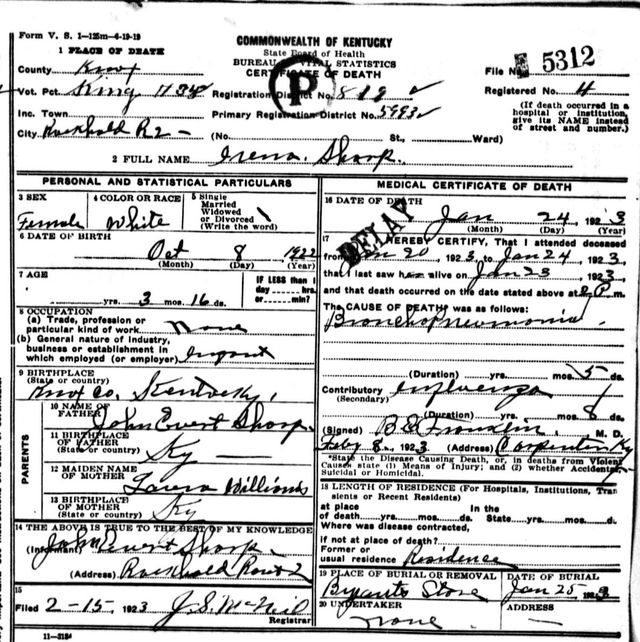 Form V. S. 1-125m-6-19-19
COMMONWEALTH OF KENTUCKY
State Board of Health
BUREAU OF VITAL STATISTICS
CERTIFICATE OF DEATH
P
File No 5312
Registered No. 4
(If death occurred in a hospital or institution, give its NAME instead of street and number.)
1 PLACE OF DEATH
County Knox
Vot. Pct. King
Registration District No.
Inc. Town
Primary Registration District No. 5993
City Rockhold R2 (No. St., Ward)
2 FULL NAME Irena Sharp.
PERSONAL AND STATISTICAL PARTICULARS
3 SEX
Female
4 COLOR OR RACE
White
5 Single
Married
Widowed
or Divorced
(Write the word)
6 DATE OF BIRTH
Oct 8 1922
(Month) (Day) (Year)
7 AGE
yrs. 3 mos. 16 ds.
IF LESS than 1
day hrs.
or min.
8 OCCUPATION
(a) Trade, profession or
particular kind of work None
(b) General nature of industry,
business or establishment in
which employed (or employer) Infant
9 BIRTHPLACE
(State or country)
Knox Co. Kentucky,
PARENTS
10 NAME OF
FATHER John Evert Sharp
11 BIRTHPLACE
OF FATHER
(State or country) Ky
12 MAIDEN NAME
OF MOTHER Laura Williams
13 BIRTHPLACE
OF MOTHER
(State or country) Ky
14 THE ABOVE IS TRUE TO THE BEST OF MY KNOWLEDGE
(Informant) John Evert Sharp
(Address) Rockhold Rout 2
15
Filed 2-15, 1923 J. S. McNeil
Registrar
11-3184
MEDICAL CERTIFICATE OF DEATH
16 DATE OF DEATH
Jan 24 1923
(Month) (Day) (Year)
DELAY
17 I HEREBY CERTIFY, That I attended deceased
from Jan 20 1923, to Jan 24, 1923,
that I last saw her alive on Jan 23, 1923,
and that death occurred on the date stated above at 2 P. m.
The CAUSE OF DEATH* was as follows:
Bronchopneumonia
(Duration) yrs. mos. 5 ds.
Contributory Influenza
(Secondary)
(Duration) yrs. mos. 8 ds.
(Signed) Franklin, M. D.
Feby 8, 1923 (Address) Carpenter Ky
*State the Disease Causing Death, or, in deaths from Violent
Causes state (1) Means of Injury; and (2) whether Accidental,
Suicidal or Homicidal.
18 LENGTH OF RESIDENCE (For Hospitals, Institutions, Transients or Recent Residents)
At place In the
of death yrs. mos. ds. State yrs. mos. ds.
Where was disease contracted,
if not at place of death?
Former or
usual residence Residence
19 PLACE OF BURIAL OR REMOVAL
Bryants Store
DATE OF BURIAL
Jan 25
20 UNDERTAKER
None
ADDRESS